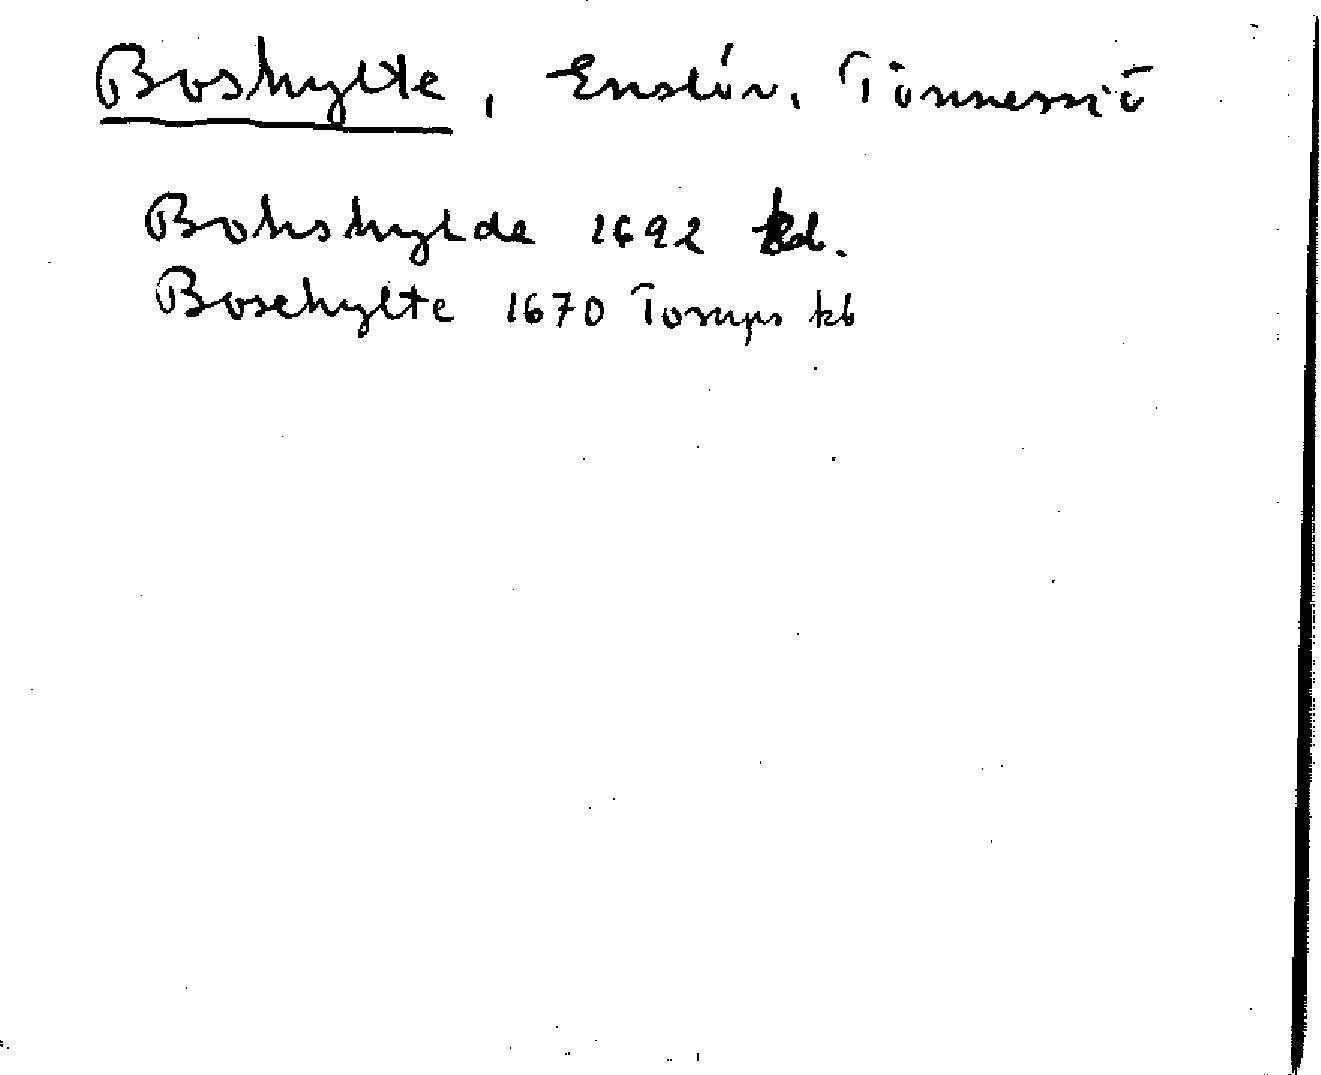 Boshylte, Enslöv, Tönnersjö
Bohshylde 1692 kd.
Bosehylte 1670 Torups kb